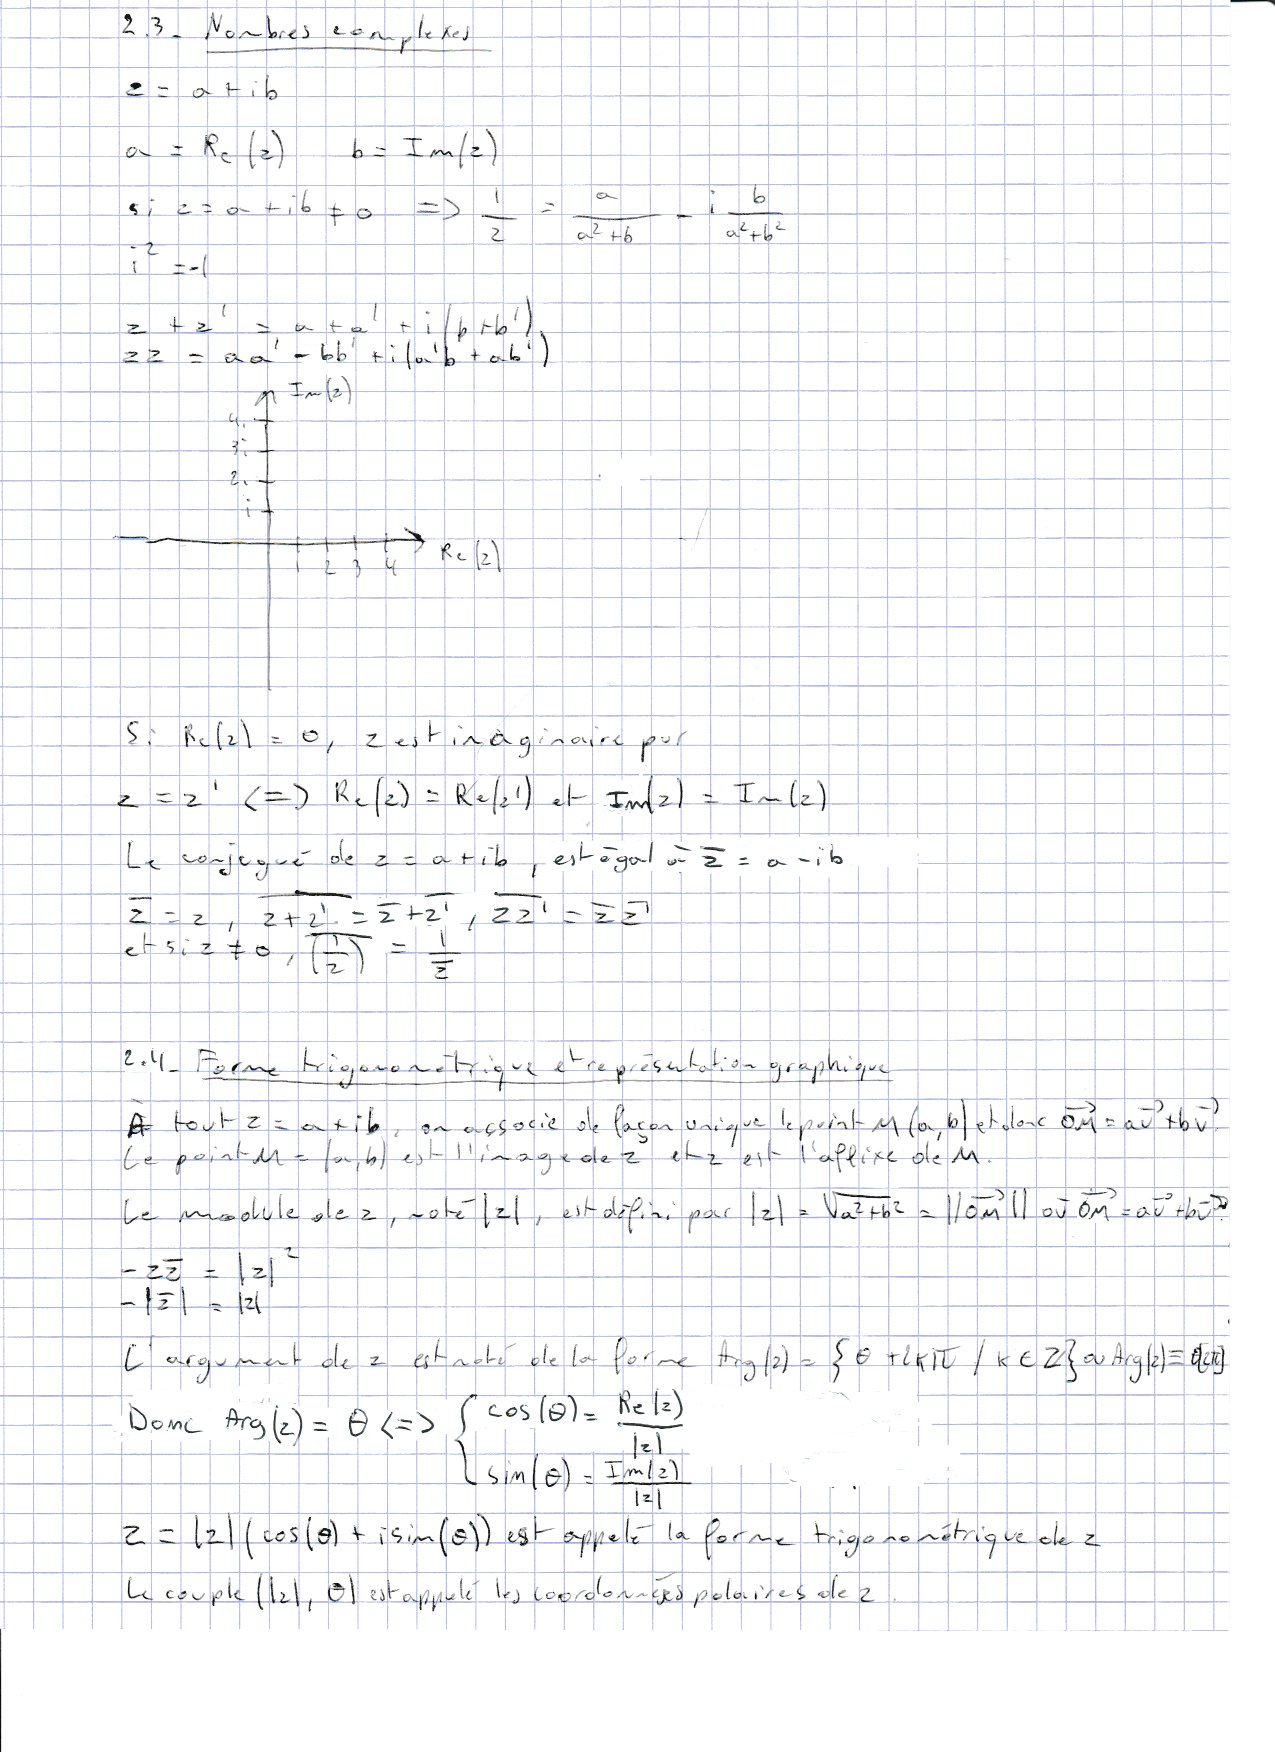 2.3. Nombres complexes
z = a + ib
a = Re(z) b = Im(z)
si z = a + ib ≠ 0 => 1/z = a/(a²+b) - i b/(a²+b²)
i² = -1
z + z' = a + a' + i(b + b')
zz = aa' - bb' + i(a'b + ab')
Im(z)
4i
3i
2i
i
1 2 3 4 Re(z)
Si Re(z) = 0, z est imaginaire pur
z = z' <=> Re(z) = Re(z') et Im(z) = Im(z)
Le conjegué de z = a + ib, est égal à z̅ = a - ib
z̅ = z, \overline{z+z'} = z̅ + \overline{z'}, \overline{zz'} = z̅ \overline{z'}
et si z ≠ 0, \overline{(1/z)} = 1/z̅
2.4. Forme trigonométrique et représentation graphique
À tout z = a + ib, on associe de façon unique le point M(a,b) et donc \overrightarrow{OM} = a\vec{u} + b\vec{v}.
Le point M = (a,b) est l'image de z et z est l'affixe de M.
Le module de z, noté |z|, est défini par |z| = √(a²+b²) = ||\overrightarrow{OM}|| où \overrightarrow{OM} = a\vec{u} + b\vec{v}
- zz̅ = |z|²
- |z̅| = |z|
L'argument de z est noté de la forme Arg(z) = {θ + 2kπ / k ∈ Z} ou Arg(z) ≡ θ[2π]
Donc Arg(z) = θ <=> { cos(θ) = Re(z)/|z|
sin(θ) = Im(z)/|z|
z = |z|(cos(θ) + i sin(θ)) est appelé la forme trigonométrique de z
Le couple (|z|, θ) est appelé les coordonnées polaires de z.